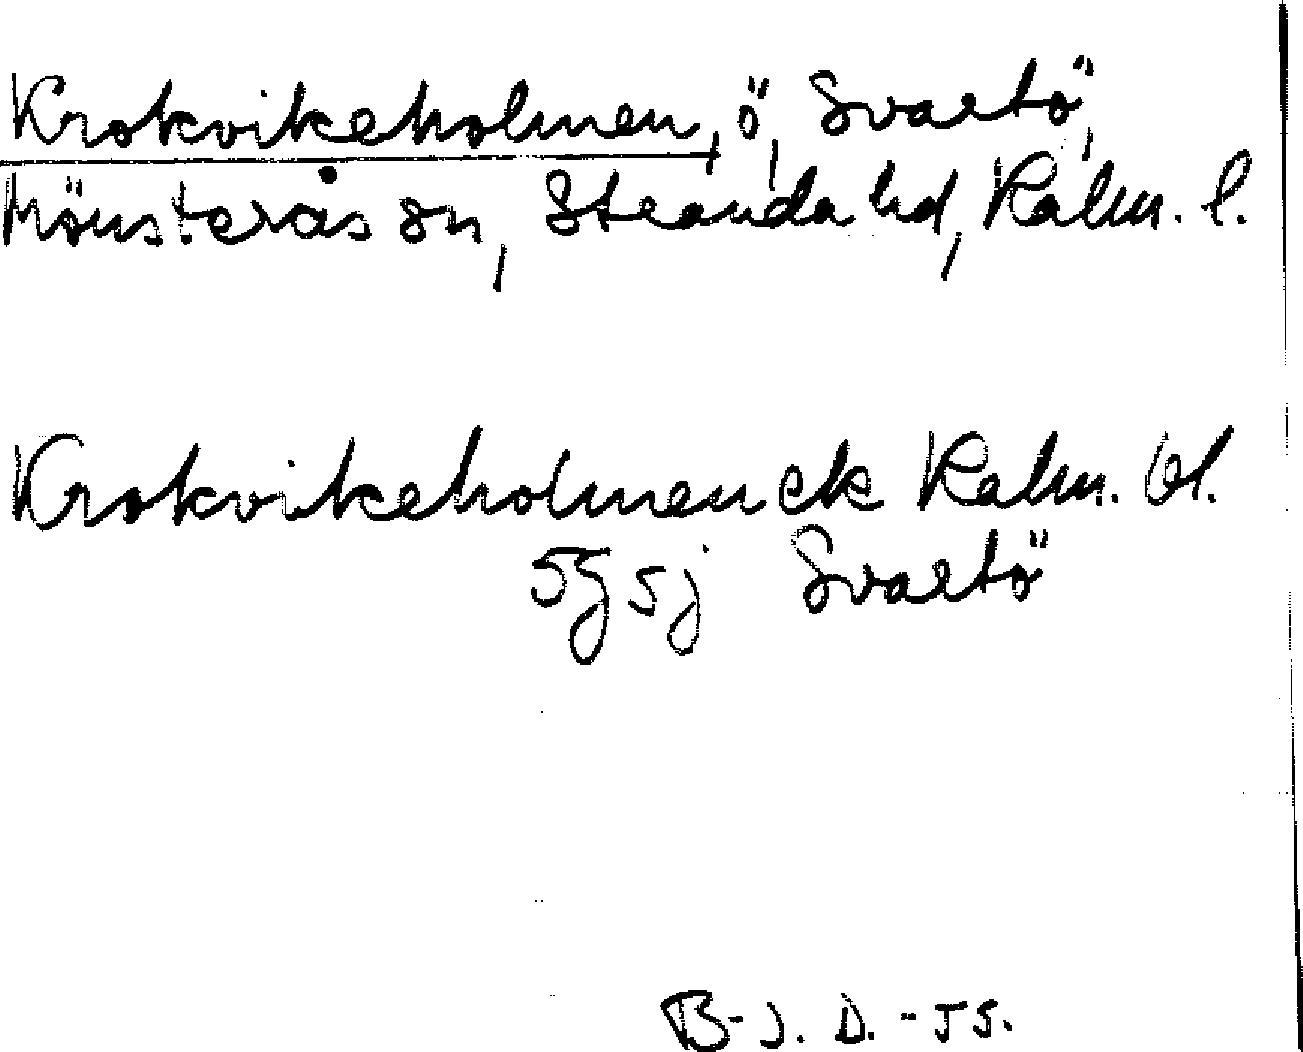 Krokvikeholmen, ö, Svartö,
Mönsterås sn, Stranda hd, Kalm. l.
Krokvikeholmen ek Kalm. bl.
5g 5j Svartö
B-J. D. -55.